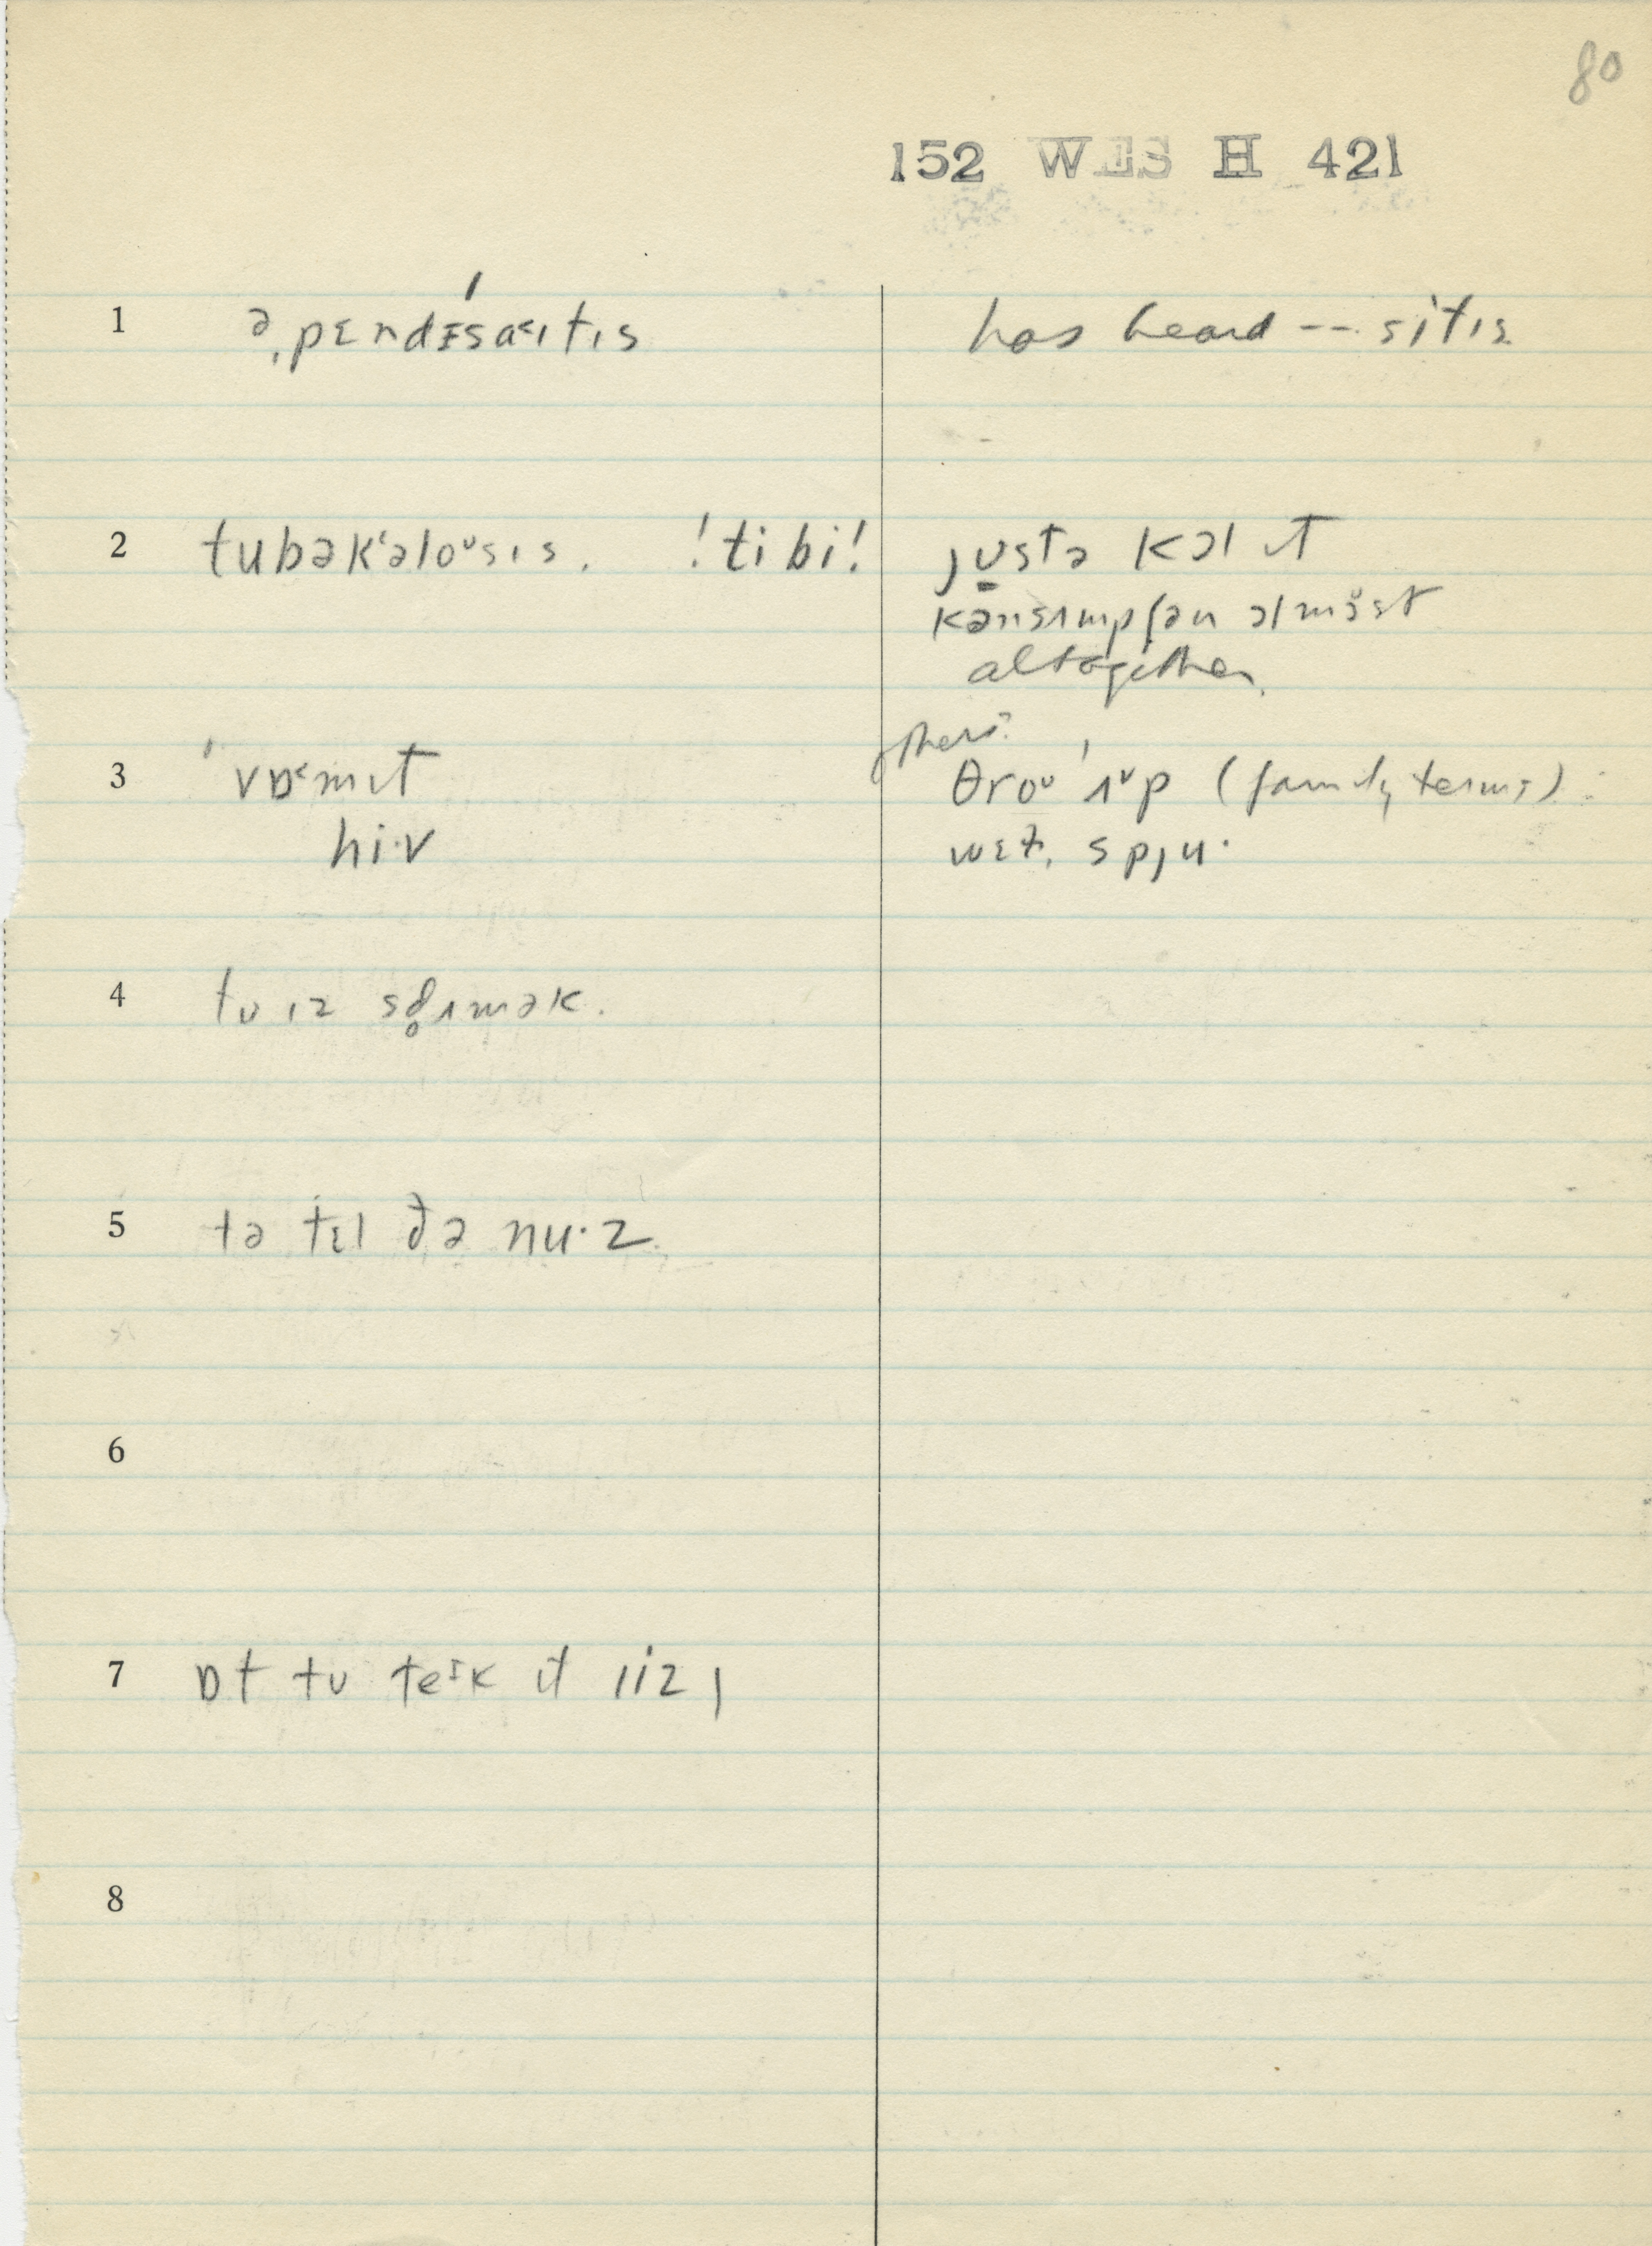 80
152 WES H 421
1 əˌpɛndɪ'sa˂ɪtɪs has heard -- sitis
2 tubəkʻəloᶷsɪs. !tibi! jʊstə kɔl ɪt
kənsʌmpʃən ɔlmöst
altogether.
3 'vɒ˂mɪt others? θroᶷ 'ʌᵛp (family terms)
hi·v wɛt. spju·
4 tʊ ɪz stʌmək.
5 tə tɛl ðə nu·z
6
7 ɒt tʊ teᶦk ɪt iizɪ
8